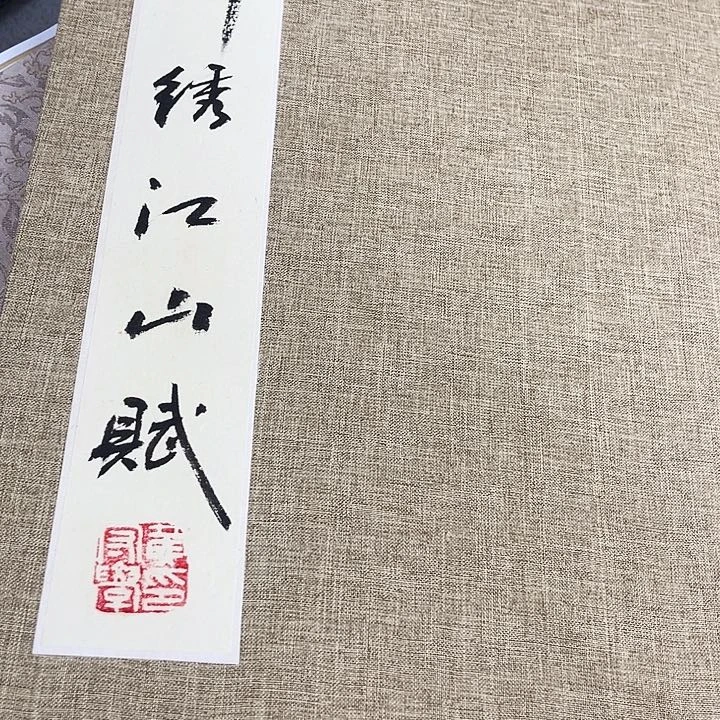 绣江山賦